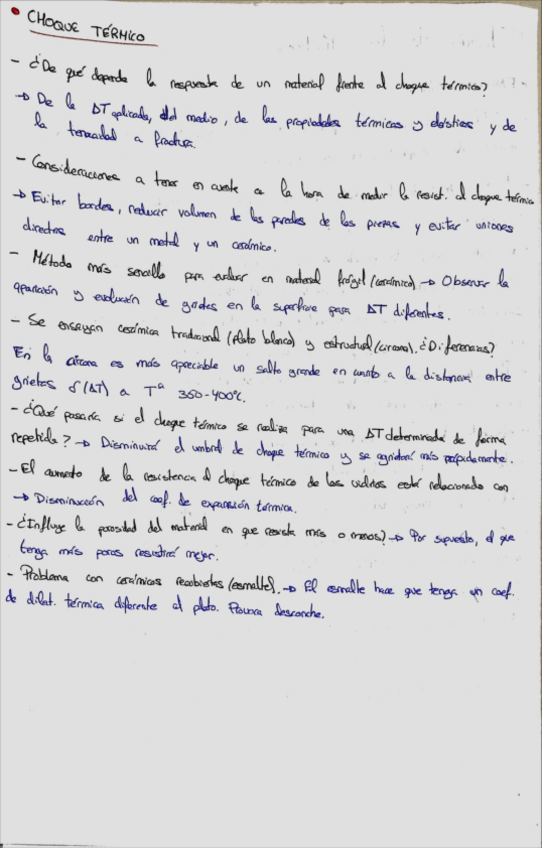 • CHOQUE TÉRMICO
- ¿De qué depende la respuesta de un material frente al choque térmico?
→ De la ΔT aplicada, del medio, de las propiedades térmicas y elásticas y de
la tenacidad a fractura.
- Consideraciones a tener en cuenta a la hora de medir la resist. al choque térmico
→ Evitar bordes, reducir volumen de las paredes de las piezas y evitar uniones
directas entre un metal y un cerámico.
- Método más sencillo para evaluar en material frágil (cerámico) → Observar la
aparición y evolución de grietas en la superficie para ΔT diferentes.
- Se ensayan cerámica tradicional (plato blanco) y estructural (circona). ¿Diferencias?
En la circona es más apreciable un salto grande en cuanto a la distancia entre
grietas δ(ΔT) a Tª 350-400ºC.
- ¿Qué pasaría si el choque térmico se realiza para una ΔT determinada de forma
repetida? → Disminuirá el umbral de choque térmico y se agrietará más rápidamente.
- El aumento de la resistencia al choque térmico de los vidrios está relacionado con
→ Disminución del coef. de expansión térmica.
- ¿Influye la porosidad del material en que resista más o menos? → Por supuesto, el que
tenga más poros resistirá mejor.
- Problema con cerámicos recubiertos (esmalte). → El esmalte hace que tenga un coef.
de dilat. térmica diferente al plato. Provoca desconche.